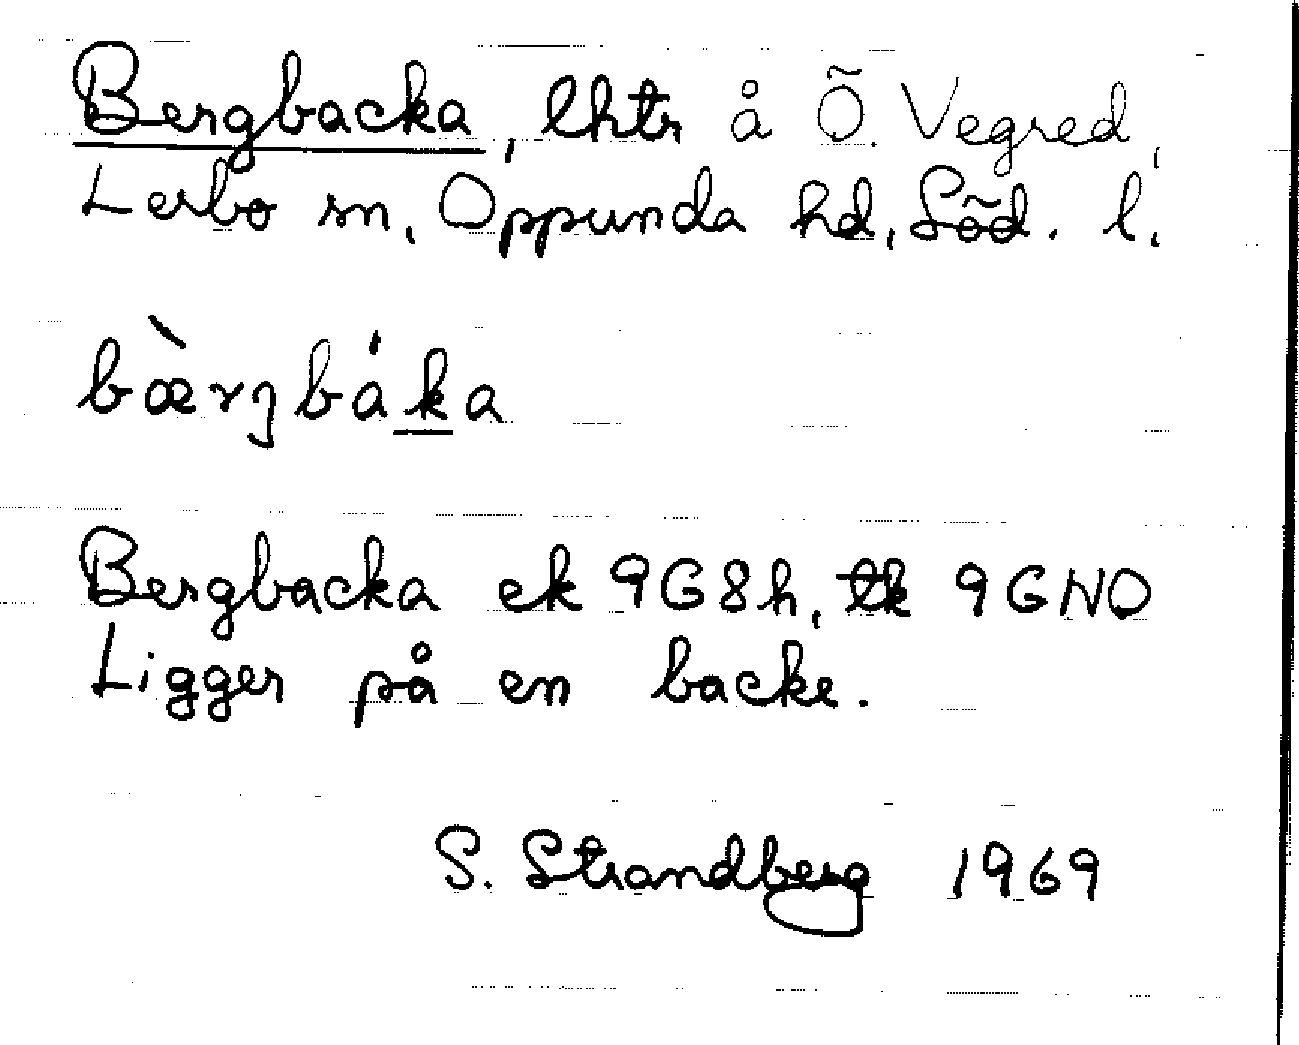 Bergbacka, lhtr å Ö. Vegred,
Lerbo sn, Oppunda hd, Söd. l.
bæ̀rʒbákа
Bergbacka ek 9G8h, tk 9GNO
Ligger på en backe.
S. Strandberg 1969